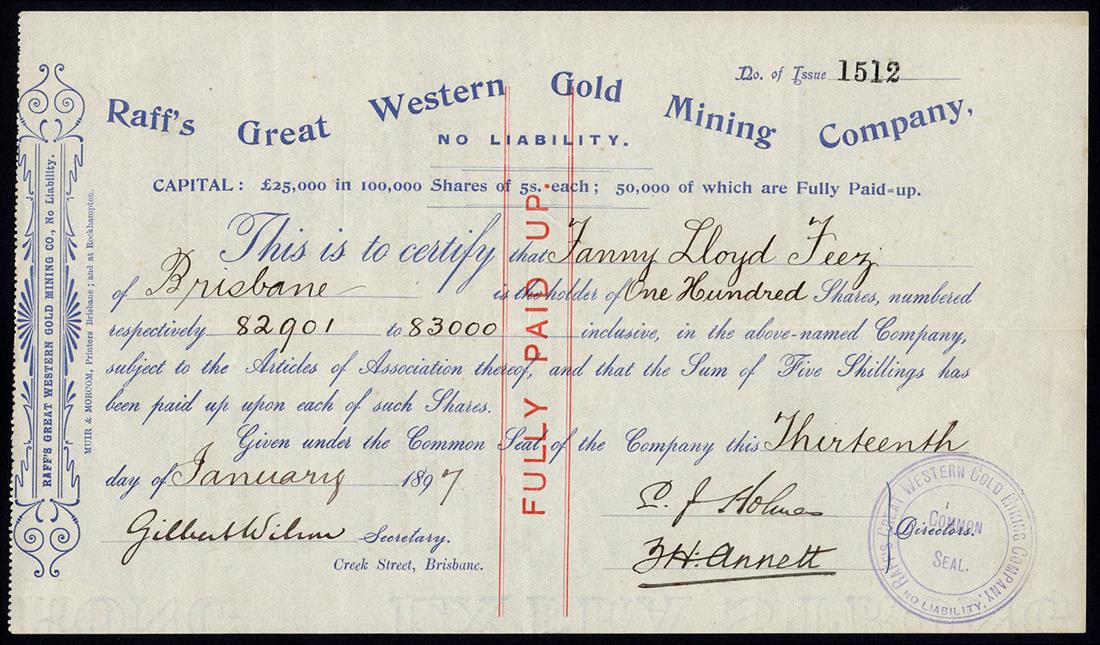 No. of Issue 1512
Raff's Great Western Gold Mining Company,
NO LIABILITY.
CAPITAL: £25,000 in 100,000 Shares of 5s. each; 50,000 of which are Fully Paid-up.
This is to certify that Fanny Lloyd Feez
of Brisbane is the holder of One Hundred Shares, numbered
respectively 82901 to 83000 inclusive, in the above-named Company,
subject to the Articles of Association thereof, and that the Sum of Five Shillings has
been paid up upon each of such Shares.
Given under the Common Seal of the Company this Thirteenth
day of January 1897
Gilbert Wilson Secretary.
Creek Street, Brisbane.
J Holmes
H. Annett
Directors.
FULLY PAID UP.
RAFF'S GREAT WESTERN GOLD MINING COMPANY,
NO LIABILITY,
COMMON
SEAL.
RAFF'S GREAT WESTERN GOLD MINING CO., No Liability.
MUIR & MORCOM, Printers Brisbane; and at Rockhampton.